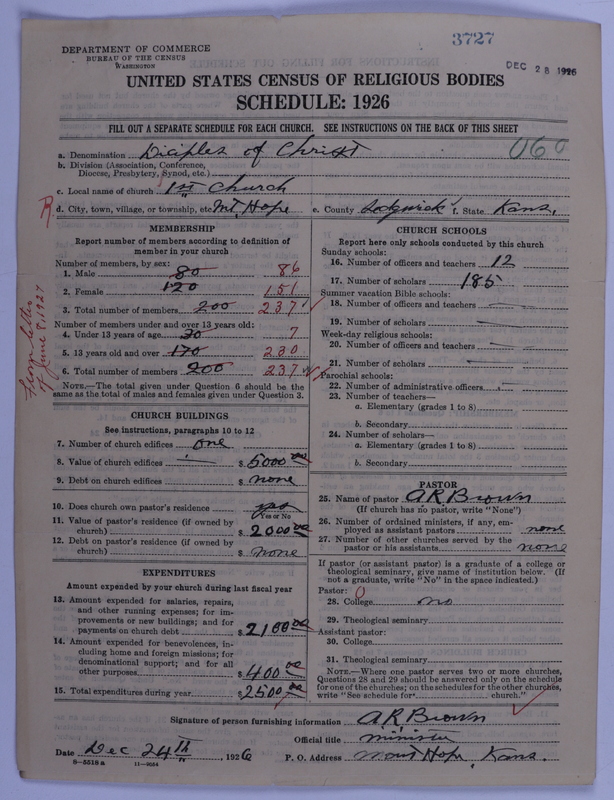 3727
DEC 28 1926
DEPARTMENT OF COMMERCE
BUREAU OF THE CENSUS
WASHINGTON
UNITED STATES CENSUS OF RELIGIOUS BODIES
SCHEDULE: 1926
FILL OUT A SEPARATE SCHEDULE FOR EACH CHURCH. SEE INSTRUCTIONS ON THE BACK OF THIS SHEET
a. Denomination Diciples of Christ 060
b. Division (Association, Conference,
Diocese, Presbytery, Synod, etc.)
c. Local name of church 1st Church
R. d. City, town, village, or township, etc. Mt. Hope e. County Sedgwick f. State Kans.
MEMBERSHIP
Report number of members according to definition of
member in your church
Number of members by sex:
1. Male 80 86
2. Female 120 151
3. Total number of members 200 237
Number of members under and over 13 years old:
4. Under 13 years of age 30 7
5. 13 years old and over 170 230
6. Total number of members 200 237
NOTE.—The total given under Question 6 should be the
same as the total of males and females given under Question 3.
From letter
of June 8, 1927
CHURCH BUILDINGS
See instructions, paragraphs 10 to 12
7. Number of church edifices one
8. Value of church edifices $ 5000 00
9. Debt on church edifices $ none
10. Does church own pastor's residence yes
Yes or No
11. Value of pastor's residence (if owned by
church) $ 2000 00
12. Debt on pastor's residence (if owned by
church) $ none
EXPENDITURES
Amount expended by your church during last fiscal year
13. Amount expended for salaries, repairs,
and other running expenses; for im-
provements or new buildings; and for
payments on church debt $ 2100 00
14. Amount expended for benevolences, in-
cluding home and foreign missions; for
denominational support; and for all
other purposes $ 400 00
15. Total expenditures during year $ 2500 00
CHURCH SCHOOLS
Report here only schools conducted by this church
Sunday schools:
16. Number of officers and teachers 12
17. Number of scholars 185
Summer vacation Bible schools:
18. Number of officers and teachers
19. Number of scholars
Week-day religious schools:
20. Number of officers and teachers
21. Number of scholars
Parochial schools:
22. Number of administrative officers
23. Number of teachers—
a. Elementary (grades 1 to 8)
b. Secondary
24. Number of scholars—
a. Elementary (grades 1 to 8)
b. Secondary
PASTOR
25. Name of pastor A R Brown
(If church has no pastor, write "None")
26. Number of ordained ministers, if any, em-
ployed as assistant pastors none
27. Number of other churches served by the
pastor or his assistants none
If pastor (or assistant pastor) is a graduate of a college or
theological seminary, give name of institution below. (If
not a graduate, write "No" in the space indicated.)
Pastor: 0
28. College no
29. Theological seminary
Assistant pastor:
30. College
31. Theological seminary
NOTE.—Where one pastor serves two or more churches,
Questions 28 and 29 should be answered only on the schedule
for one of the churches; on the schedules for the other churches,
write "See schedule for church."
Signature of person furnishing information A R Brown
Official title minister
Date Dec 24th, 1926 P. O. Address Mount Hope, Kans.
8-5518a 11-2554